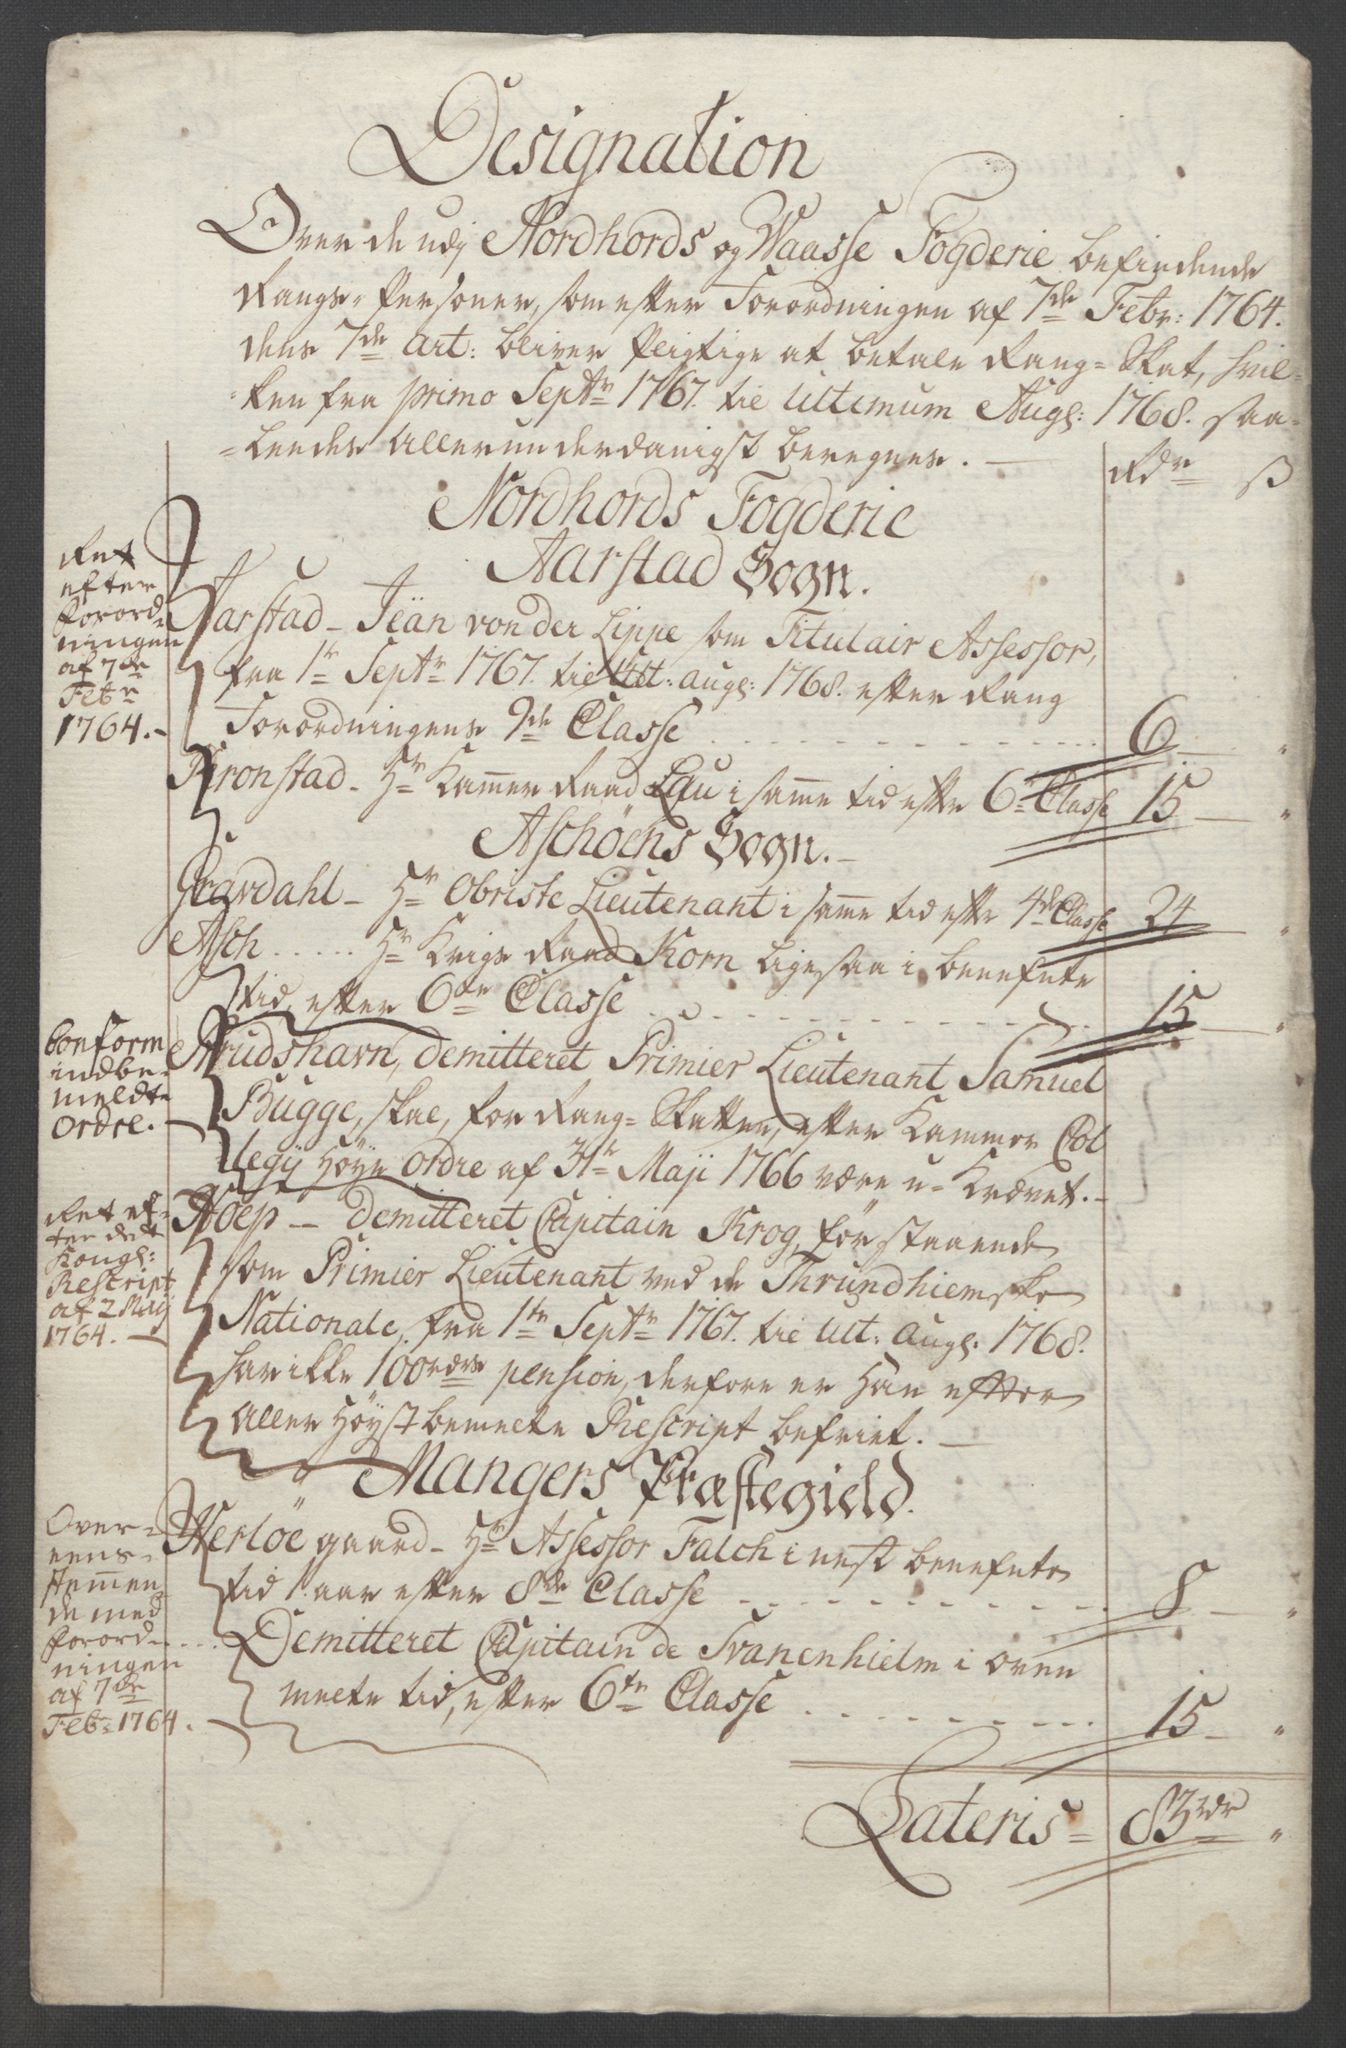 Designation
Over de udj Nordhords og Waasse Fogderie befindende
Rangs-Personer, som efter Forordningen af 7de Febr: 1764.
dens 7de Art: bliver pligtige at betale Rang-Skat, hvil-
ken fra primo Septbr 1767. til ultimum Augs: 1768. saa-
-ledes allerunderdanigst beregnes. —
Rdr ß
Nordhords Fogderie
Aarstad Sogn.
Ret
efter
forord-
ningen
af 7de
Febr
1764.-
Aarstad - Jëan von der Lippe som Titulair Assessor,
fra 1te Septbr 1767. til ult: augs: 1768. efter Rang
Forordningens 9de Classe 6 — "
Kronstad - Hr Kam̅er Raad Lau i sam̅e tid efter 6te Classe 15 — "
Aschöens Sogn. —
Gravdahl - Hr Obriste Lieutenant i sam̅e tid efter 4de Classe 24 "
Asch ..... Hr Krigs Raad Korn ligesaa i benefnte
tid, efter 6te Classe 15 — "
Conform
indbe-
meldte
Ordre. -
Strudshavn, demitteret Primier Lieutenant Samuel
Bugge, skal, for Rang-Skatten, efter Kammer Col
legij Höye ordre af 31te Maji 1766 være u-krævet. -
Ret ef-
ter dedt
Kongl:
Rescript
af 2 May
1764. -
Hoep — demitteret Capitain Krog, för staaende
som Primier Lieutenant ved de Thrundhiemske
Nationale, fra 1te Septbr 1767. til ult: augs. 1768.
har ikke 100rdrs pension, derfore er han efter
aller höystbemelte Rescript befriet. —
Mangers Præstegield.
Over-
eens-
stem̅en
de med
forord-
ningen
af 7de
Febr 1764.
Herlöe gaard - Hr Assessor Falch i nest benefnte
tid 1 aar efter 8de Classe 8 — "
Demitteret Capitain de Svanenhielm i oven
melte tid, efter 6te Classe 15 — "
Lateris = 83rdr "